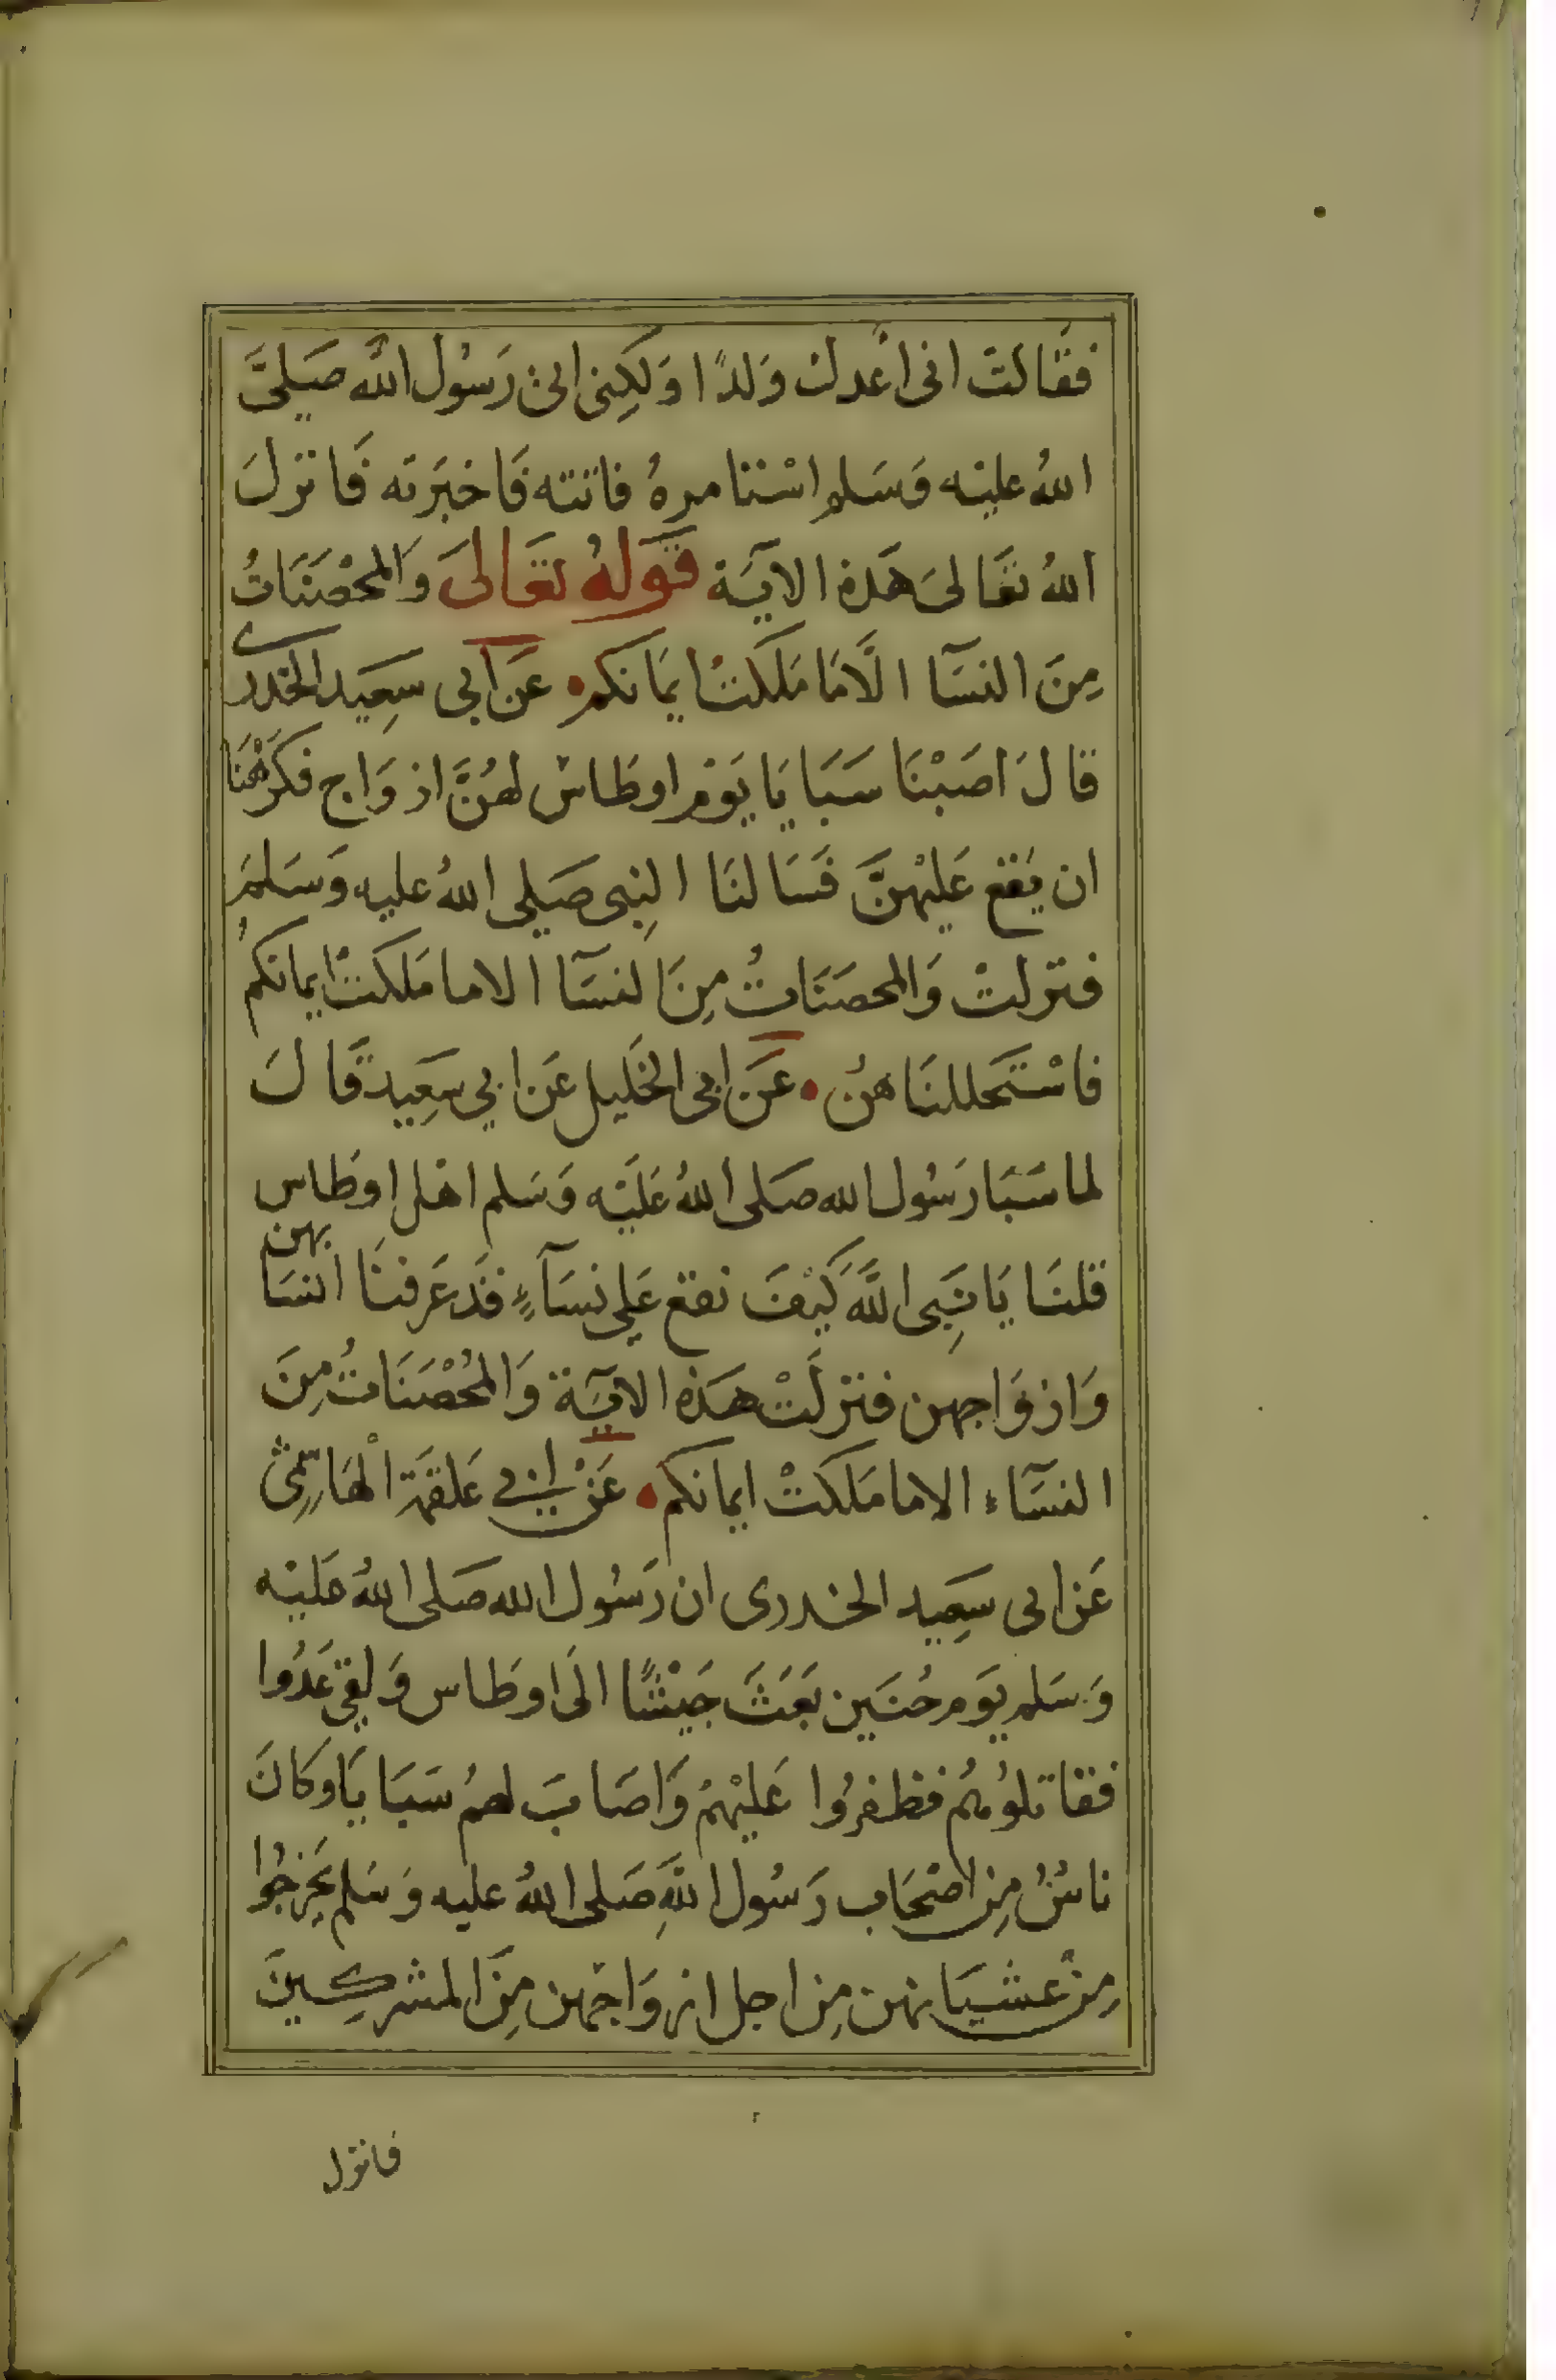 فقالت انى اعدك ولدًا ولكنى اتى رسول الله صَلىَّ
اللهُ عليْه وَسَلم اسْتامرهُ فاتته فَاخبَرته فَانزلَ
اللهُ تعَالىَ هَذه الايَة قَولهُ تعَالىَ وَالمحْصَنَاتُ
مِنَ النسَآ الَّامَا مَلكتْ ايمَانكم عَن ابى سعِيد الخدرى
قالَ اصَبْنَا سَبَايَا يَوْم اوطَاسْ لهُنَّ ازوَاج فكَرَهْنَا
ان يَقع عَليْهنَّ فَسَالنَا النِبى صَلى اللهُ عليه وَسَلمَ
فنزلتْ وَالمحصَنَاتُ مِنَ النسَآ الاما مَلكتْ ايمانكمْ
فاسْتَحللنَاهن عَن ابى الخَليل عَن ابي سَعِيد قَالَ
لما سَبَا رَسُول الله صَلى اللهُ عَليْه وَسَلم اهْل اوطَاس
قلنَا يَا نَبِى اللَّه كَيْفَ نقع عَلى نسَآءٍ قَد عَرفنَا انسَابهن
وَازوَاجهن فنزلَتْ هَذه الايَة وَالمُحْصَنَاتُ مِنَ
النسَآء الاما مَلكتْ ايمانكم عَنْ ابى عَلقمَة الْهَاشِمى
عَن ابى سَعِيد الخدرى ان رَسُول الله صَلى اللهُ عَليْه
وَسَلم يَوم حُنَين بَعَثَ جَيْشًا الَى اوطَاس وَلقى عَدُوا
فقاتلوُهُم فظفرُوا عَليْهمْ وَاصَابَ لهمُ سَبَايَا وَكَانَ
ناسٌ مِن اصْحَاب رَسُول اللهِ صَلى اللهُ عليه وَسَلم تحرجُوا
مِنْ غشيَانهن مِن اجل ازوَاجهن مِنَ المشركِين
فانزل